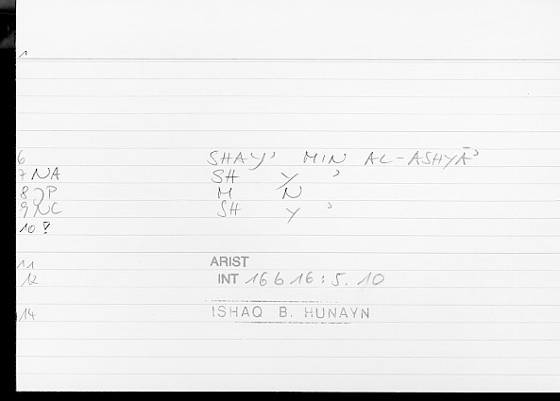 1
6 SHAYʾ MIN AL-ASHYĀʾ
7 NA SH Y ʾ
8 P M N
9 NC SH Y ʾ
10 ?
11 ARIST
12 INT 16 b 16 : 5. 10
14 ISHAQ B. HUNAYN